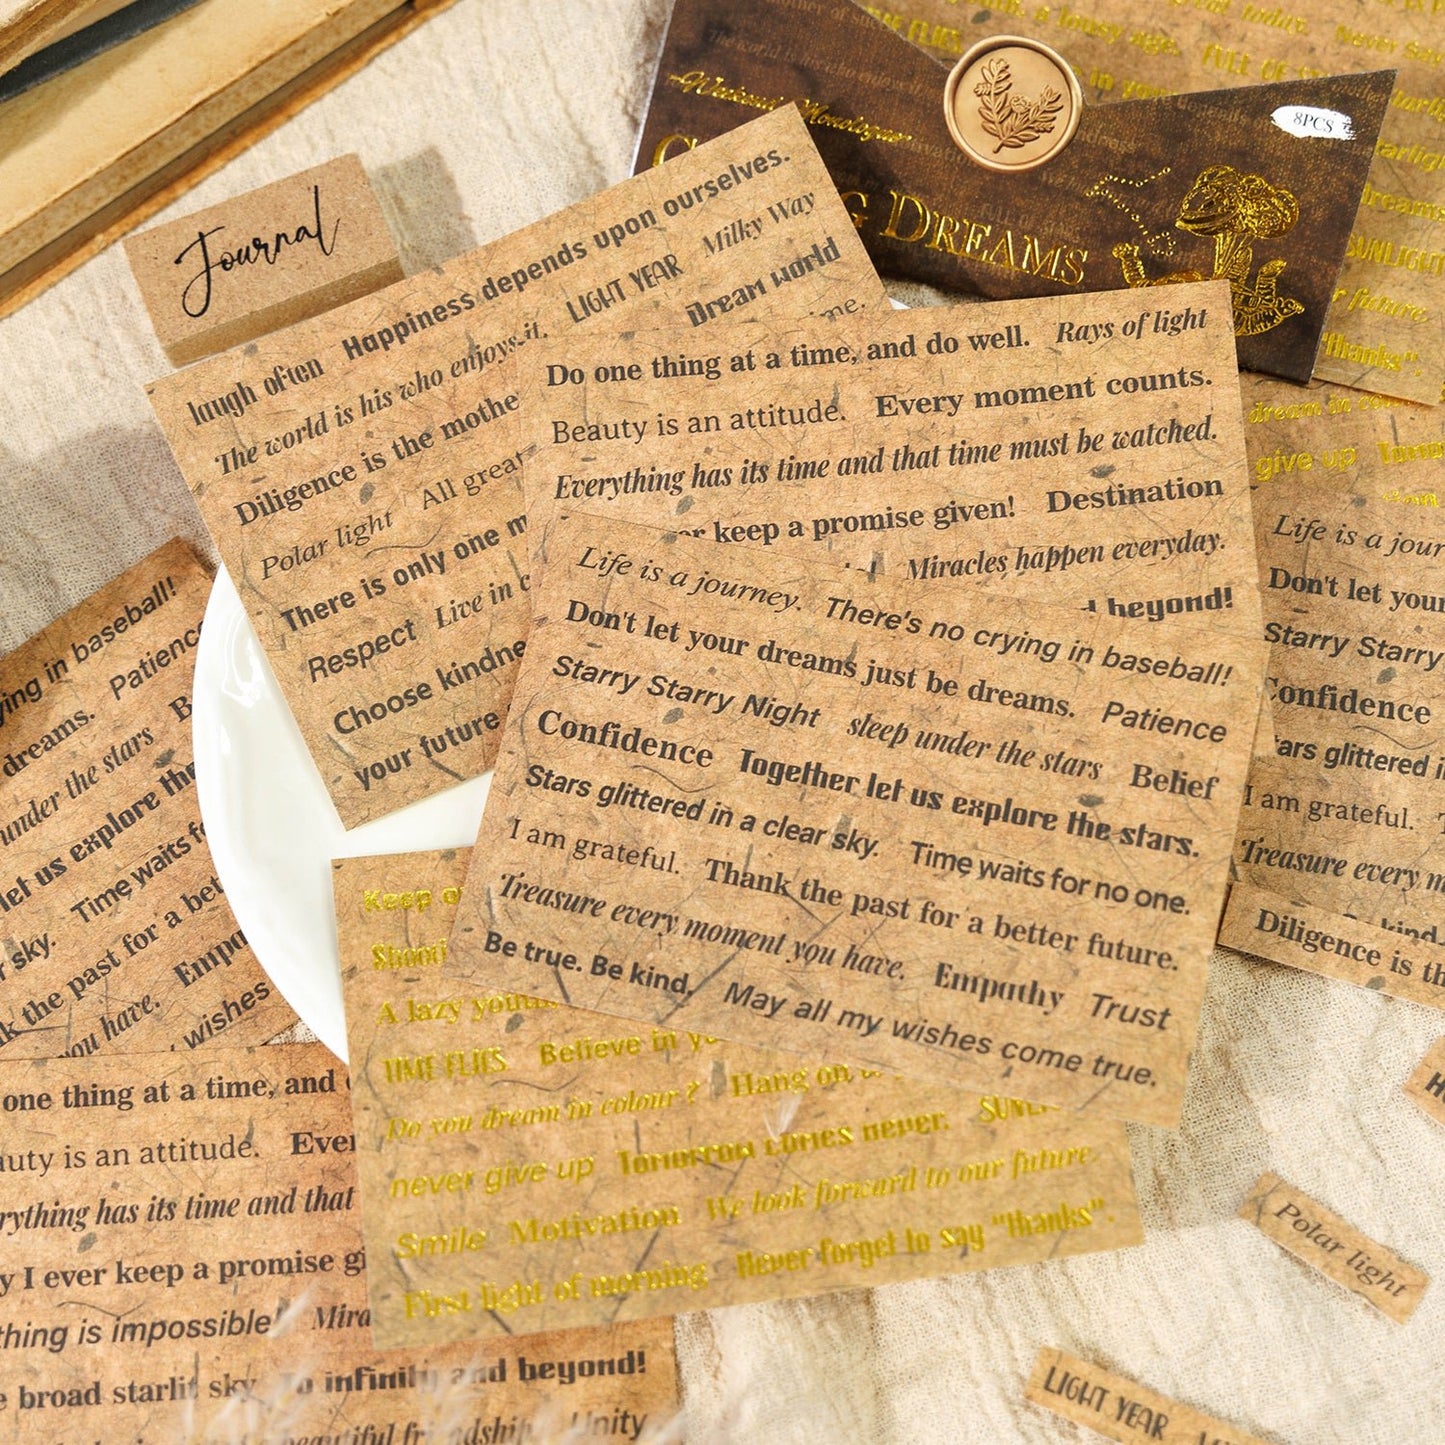 Journal
Weekend Monologue
8PCS
DREAMS
laugh often Happiness depends upon ourselves.
The world is his who enjoys it. LIGHT YEAR Milky Way
Diligence is the mothe Dream world
Polar light All great
There is only one m
Respect Live in
Choose kindne
your future
Do one thing at a time, and do well. Rays of light
Beauty is an attitude. Every moment counts.
Everything has its time and that time must be watched.
keep a promise given! Destination
Miracles happen everyday.
beyond!
Life is a journey. There's no crying in baseball!
Don't let your dreams just be dreams. Patience
Starry Starry Night sleep under the stars Belief
Confidence Together let us explore the stars.
Stars glittered in a clear sky. Time waits for no one.
I am grateful. Thank the past for a better future.
Treasure every moment you have. Empathy Trust
Be true. Be kind. May all my wishes come true.
Keep
A lazy
TIME FLIES Believe in
Do you dream in colour? Hang on
never give up Tomorrow comes never.
Smile Motivation We look forward to our future.
First light of morning Never forget to say "thanks".
in baseball!
dreams. Patience
under the stars
let us explore the
sky. Time waits
the past for a
you have.
wishes
one thing at a time, and
is an attitude.
has its time and that
I ever keep a promise
thing is impossible!
broad starlit sky To infinity and beyond!
beautiful friendship Unity
FULL OF
SUNLIGHT
future.
"thanks".
dream in
give up
Life is a
Don't let your
Starry Starry
Confidence
glittered
I am grateful.
Treasure every
Diligence is
Polar light
LIGHT YEAR